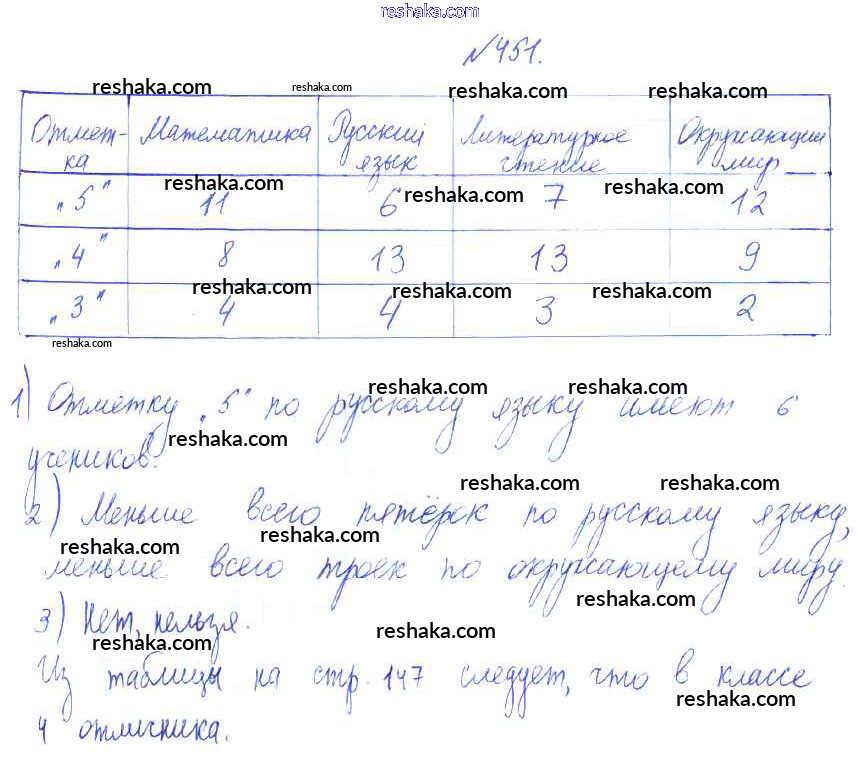 reshaka.com
№451.
reshaka.com reshaka.com reshaka.com reshaka.com
Отмет- Математика Русский Литературное Окружающий
ка язык чтение мир
reshaka.com reshaka.com reshaka.com
„5“ 11 6 7 12
„4“ 8 13 13 9
reshaka.com reshaka.com reshaka.com
„3“ 4 4 3 2
reshaka.com
reshaka.com reshaka.com
1) Отметку „5“ по русскому языку имеют 6
reshaka.com
учеников.
reshaka.com reshaka.com
2) Меньше всего пятёрок по русскому языку,
reshaka.com reshaka.com
меньше всего троек по окружающему миру.
reshaka.com
3) Нет, нельзя.
reshaka.com reshaka.com
Из таблицы на стр. 147 следует, что в классе
reshaka.com
4 отличника.